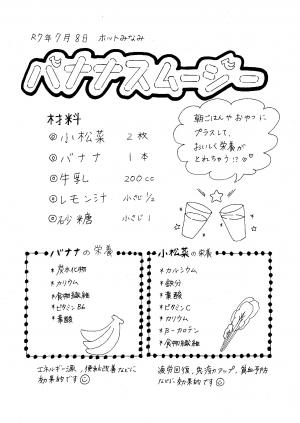 R7年7月8日 ホットみなみ
バナナスムージー
材料
◎小松菜 2枚
◎バナナ 1本
◎牛乳 200cc
◎レモン汁 小さじ1/2
◎砂糖 小さじ1
朝ごはんやおやつに
プラスして、
おいしく栄養が
とれちゃう!?♡
バナナの栄養
*炭水化物
*カリウム
*食物繊維
*ビタミンB6
*葉酸
エネルギー源、便秘改善などに
効果的です☺
小松菜の栄養
*カルシウム
*鉄分
*葉酸
*ビタミンC
*カリウム
*β-カロテン
*食物繊維
疲労回復、免疫力アップ、貧血予防
などに効果的です☺